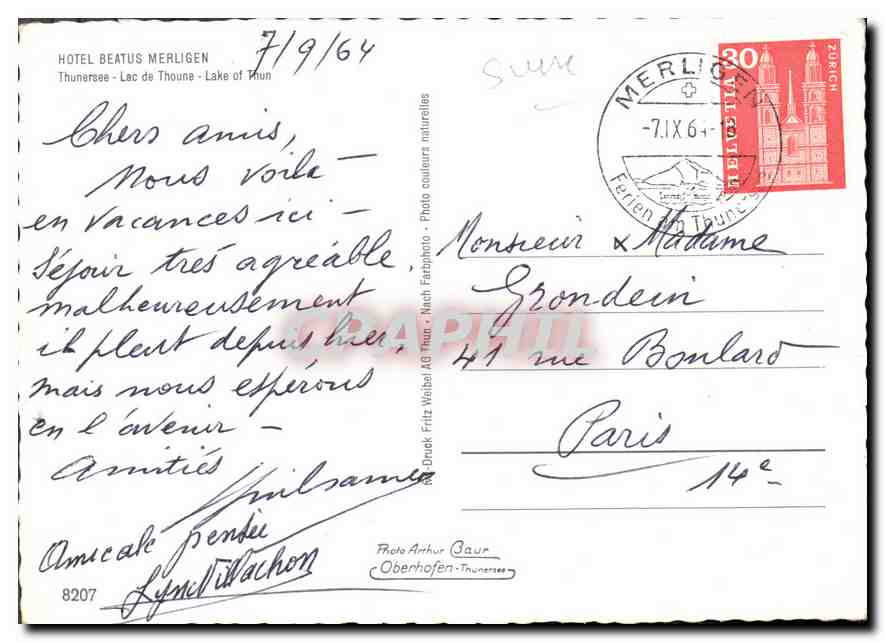 HOTEL BEATUS MERLIGEN
Thunersee - Lac de Thoune - Lake of Thun
7/9/64
Chers amis,
Nous voila —
en vacances ici —
Séjour très agréable,
malheureusement
il pleut depuis hier,
mais nous espérons
en l'avenir —
Amitiés
Amicale pensée
8207
Druck Fritz Weibel AG Thun · Nach Farbphoto · Photo couleurs naturelles
Photo Arthur Baur
Oberhofen - Thunersee
Suisse
MERLIGEN
-7.IX.64-
Ferien am Thunersee
30
HELVETIA
ZÜRICH
Monsieur & Madame
Grondein
41 rue Boulard
Paris
14e
CPAPHIL